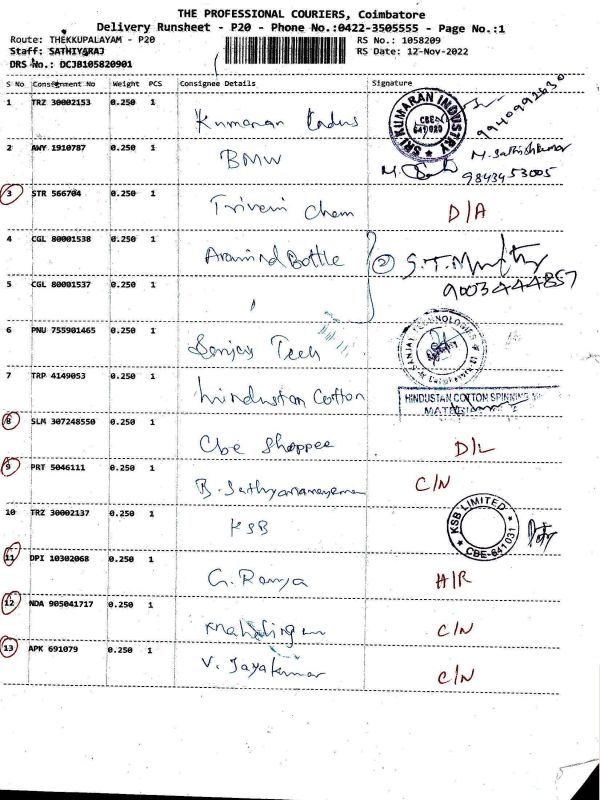 THE PROFESSIONAL COURIERS, Coimbatore
Delivery Runsheet - P20 - Phone No.:0422-3505555 - Page No.:1
Route: THEKKUPALAYAM - P20 RS No.: 1058209
Staff: SATHIYARAJ RS Date: 12-Nov-2022
DRS No.: DCJB105820901
S No Consignment No Weight PCS Consignee Details Signature
1 TRZ 30002153 0.250 1 Kumaran Indus SRI KUMARAN INDUSTRY CBE 641020 9940992630
2 AWY 1910787 0.250 1 BMW M. Sathishkumar
9843453005
3 STR 566704 0.250 1 Triveni Chem D/A
4 CGL 80001538 0.250 1 Aravind Bottle 2 S.T.
9003444857
5 CGL 80001537 0.250 1 "
6 PNU 755901465 0.250 1 Sanjay Tech SANJAY TECHNOLOGIES
7 TRP 4149053 0.250 1 hindustan Cotton HINDUSTAN COTTON SPINNING
8 SLM 307248550 0.250 1 Cbe Shoppee D/L
9 PRT 5046111 0.250 1 B. C/N
10 TRZ 30002137 0.250 1 KSB KSB LIMITED CBE-641031
11 DPI 10302068 0.250 1 G. Ramya H/R
12 NDA 905041717 0.250 1 C/N
13 APK 691079 0.250 1 V. Jayakumar C/N